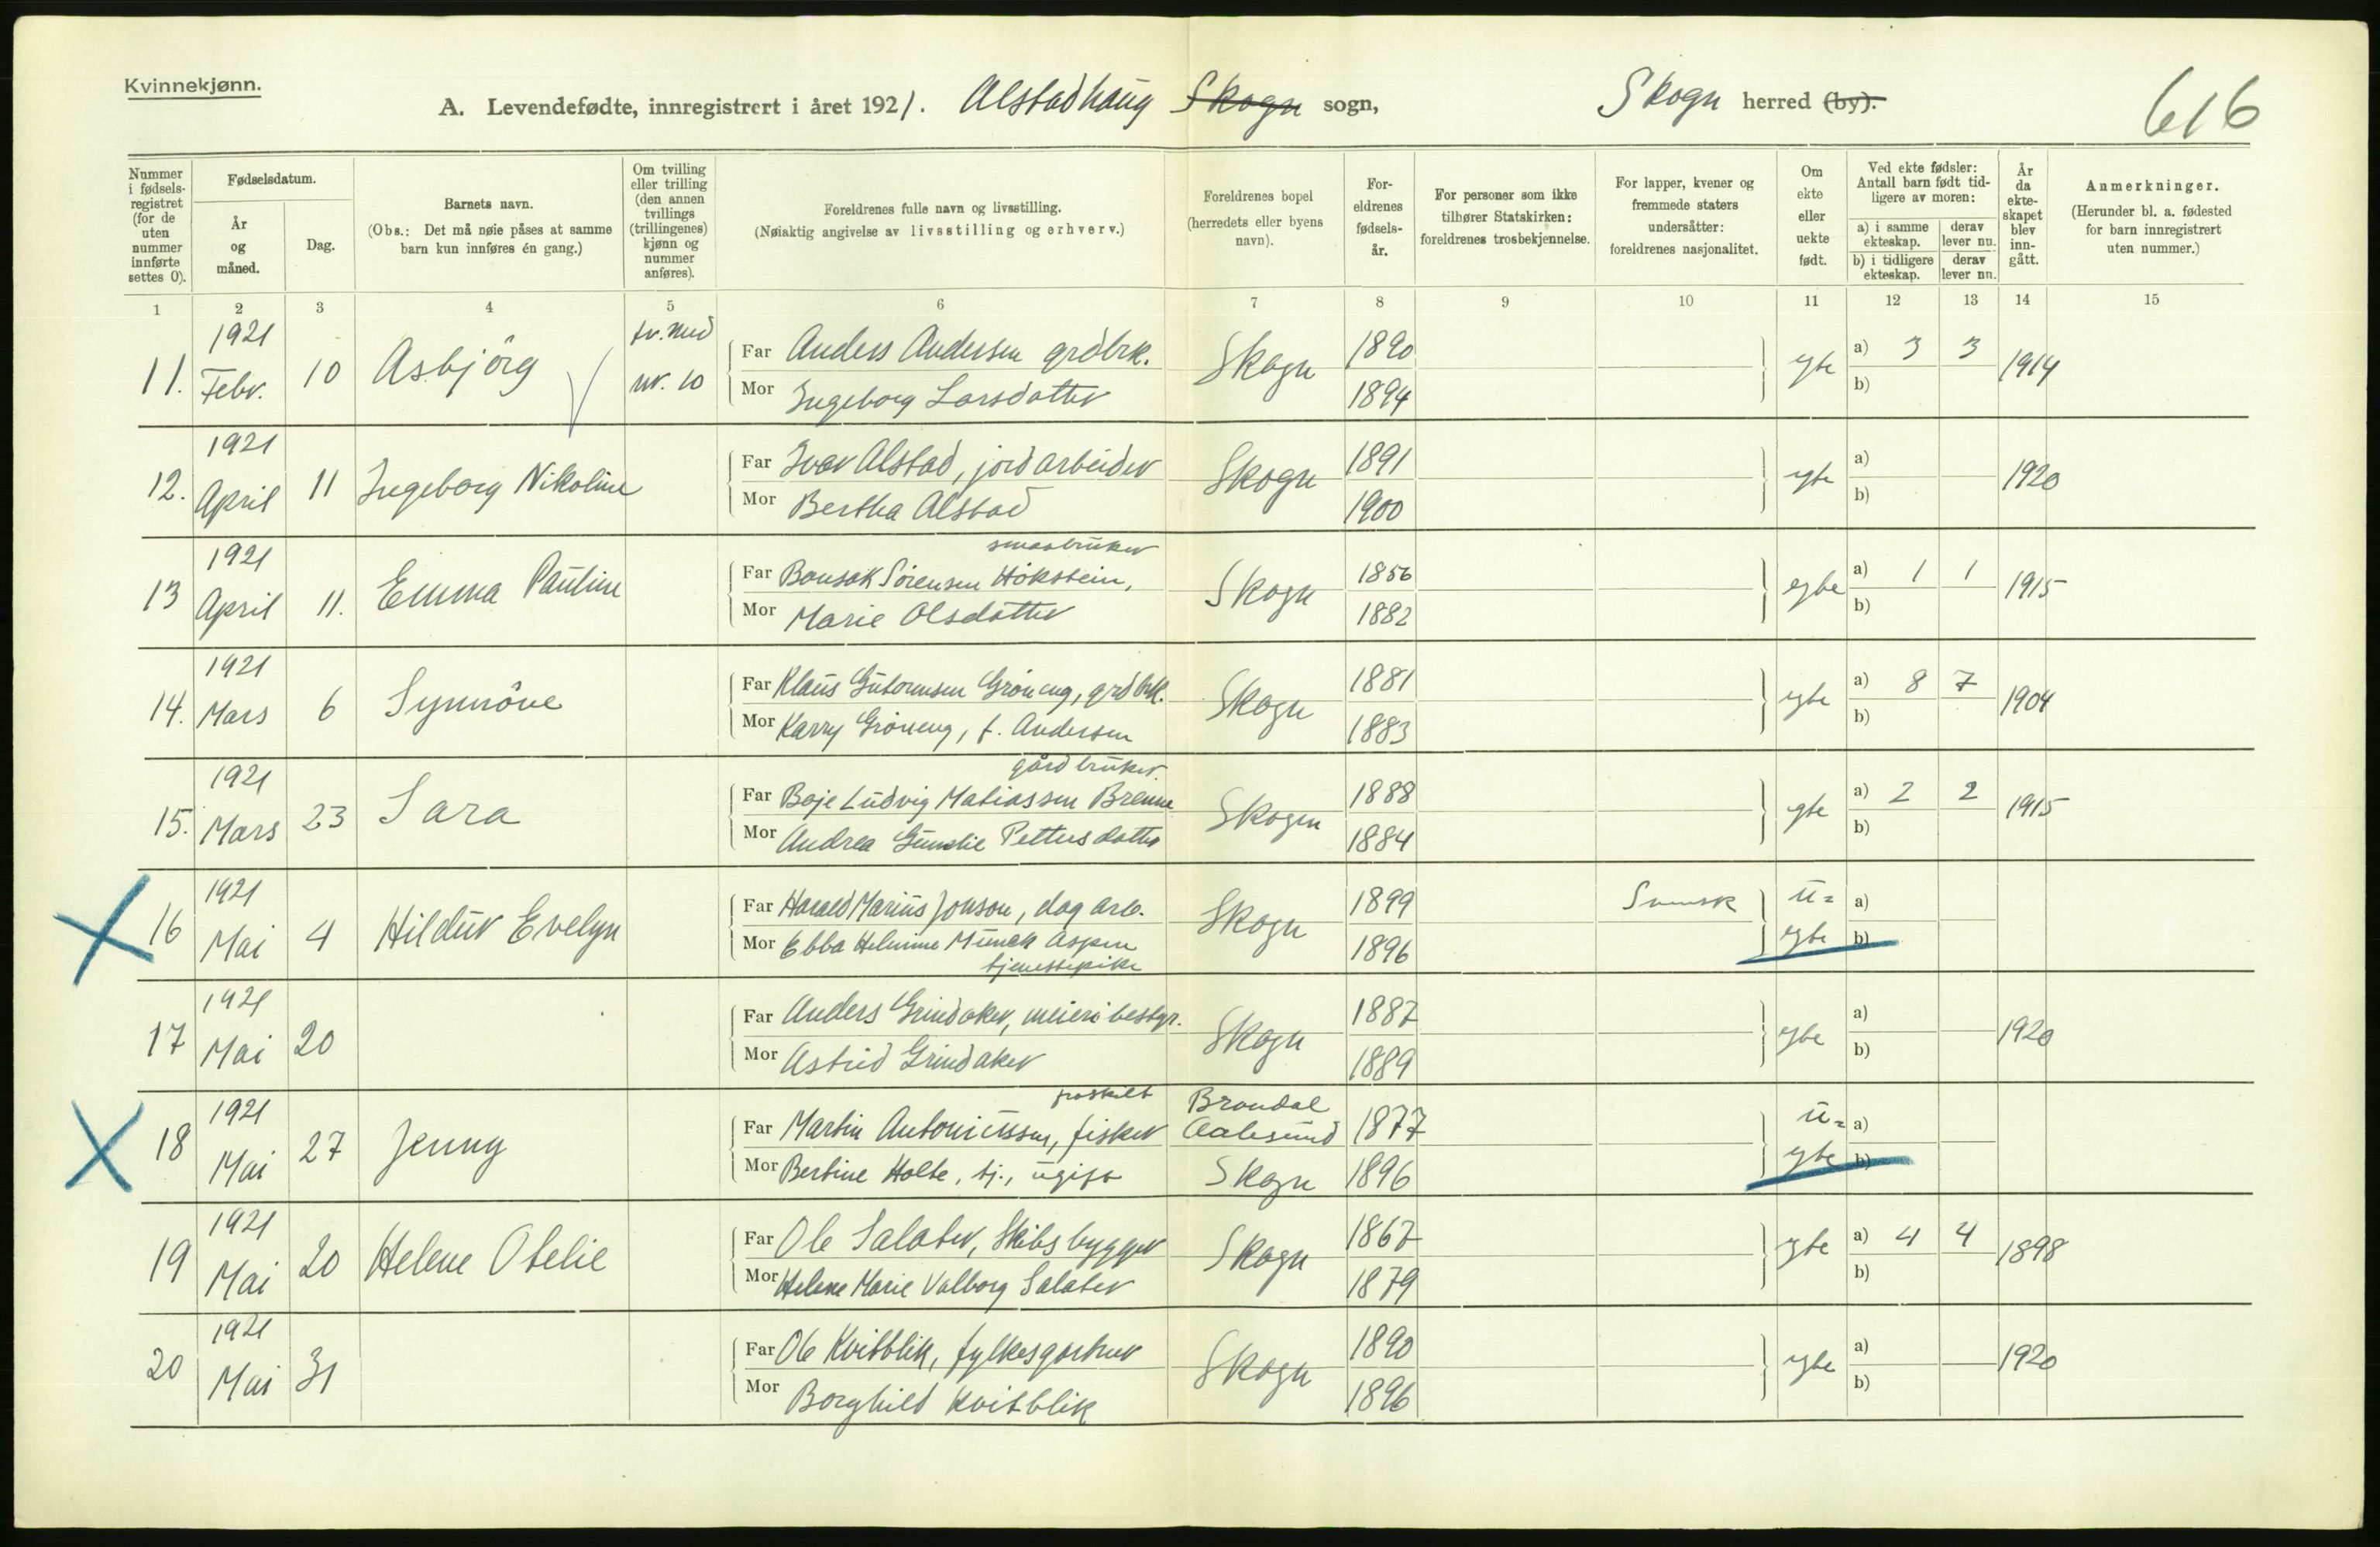 Kvinnekjønn.
A. Levendefødte, innregistrert i året 1921. Alstadhaug Skogn sogn, Skogn herred (by).
616
Nummer i fødselsregistret (for de uten nummer innførte settes 0).
Fødselsdatum.
År og måned.
Dag.
Barnets navn.
(Obs.: Det må nøie påses at samme barn kun innføres én gang.)
Om tvilling eller trilling (den annen tvillings (trillingenes) kjønn og nummer anføres).
Foreldrenes fulle navn og livsstilling.
(Nøiaktig angivelse av livsstilling og erhverv.)
Foreldrenes bopel (herredets eller byens navn).
Foreldrenes fødselsår.
For personer som ikke tilhører Statskirken: foreldrenes trosbekjennelse.
For lapper, kvener og fremmede staters undersåtter: foreldrenes nasjonalitet.
Om ekte eller uekte født.
Ved ekte fødsler: Antall barn født tidligere av moren:
a) i samme ekteskap. derav lever nu.
b) i tidligere ekteskap. derav lever nu.
År da ekteskapet blev inngått.
Anmerkninger.
(Herunder bl. a. fødested for barn innregistrert uten nummer.)
1 2 3 4 5 6 7 8 9 10 11 12 13 14 15
11. 1921 Febr. 10 Asbjörg tv. med nr. 10
Far Anders Andersen grdbrk. Skogn 1890 egte a) 3 3 1914
Mor Ingeborg Larsdatter 1894 b)
12. 1921 April 11 Ingeborg Nikoline
Far Ivar Alstad, jordarbeider Skogn 1891 egte a) 1920
Mor Bertha Alstad 1900 b)
13 1921 April 11. Emma Pauline
smaabruker
Far Bonsak Sörensen Hökstein, Skogn 1856 egte a) 1 1 1915
Mor Marie Olsdatter 1882 b)
14. 1921 Mars 6 Synnöve
Far Klaus Gutormsen Gröneng, grdbrk. Skogn 1881 egte a) 8 7 1904
Mor Karry Gröneng, f. Andersen 1883 b)
15. 1921 Mars 23 Sara
gårdbruker.
Far Boje Ludvig Matiassen Brenne Skogn 1888 egte a) 2 2 1915
Mor Andrea Pettersdatter 1884 b)
16 1921 Mai 4 Hildur Evelyn
Far Harald Marius Jonson, dagarb. Skogn 1899 Svensk u= a)
Mor Ebba Helmine Munck Aspen 1896 egte b)
tjenestepike
17 1921 Mai 20
Far Anders Grindaker, meieribestyr. Skogn 1887 egte a) 1920
Mor Astrid Grindaker 1889 b)
18 1921 Mai 27 Jenny
fraskilt
Far Martin Antoniussen, fisker Aalesund 1877 u= a)
Mor Bertine Holte, tj., ugift Skogn 1896 egte b)
19 1921 Mai 20 Helene Otelie
Far Ole Salater, Skibsbygger Skogn 1867 egte a) 4 4 1898
Mor Helene Marie Valborg Salater 1879 b)
20 1921 Mai 31
Far Ole Kvitblik, fylkesgartner Skogn 1890 egte a) 1920
Mor Borghild Kvitblik 1896 b)